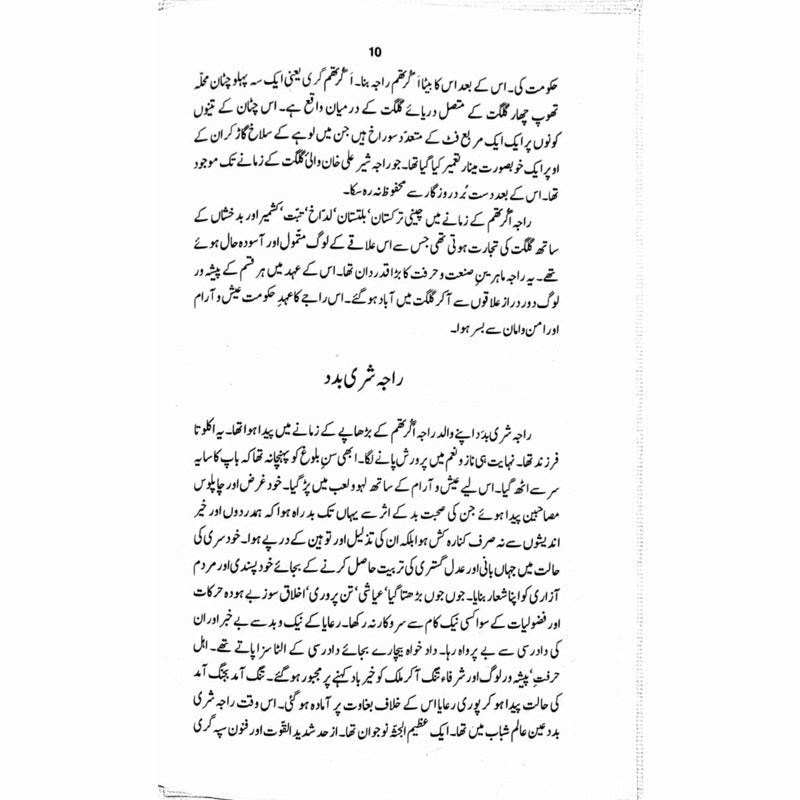 10
حکومت کی۔ اس کے بعد اس کا بیٹا اَگرتھم راجہ بنا۔ اَگرتھم گری یعنی ایک سہ پہلو چٹان محلہ
تھوپ چھار گلگت کے متصل دریائے گلگت کے درمیان واقع ہے۔ اس چٹان کے تینوں
کونوں پر ایک ایک مربع فٹ کے متعدد سوراخ ہیں جن میں لوہے کے سلاخ گاڑ کر ان کے
اوپر ایک خوبصورت مینار تعمیر کیا گیا تھا۔ جو راجہ شیر علی خان والیٔ گلگت کے زمانے تک موجود
تھا۔ اس کے بعد دست بُرد روزگار سے محفوظ نہ رہ سکا۔
راجہ اگرتھم کے زمانے میں چینی ترکستان‘ بلتستان‘ لدّاخ‘ تبّت‘ کشمیر اور بدخشاں کے
ساتھ گلگت کی تجارت ہوتی تھی جس سے اس علاقے کے لوگ متموّل اور آسودہ حال ہوئے
تھے۔ یہ راجہ ماہرینِ صنعت و حرفت کا بڑا قدردان تھا۔ اس کے عہد میں ہر قسم کے پیشہ ور
لوگ دور دراز علاقوں سے آکر گلگت میں آباد ہوگئے۔ اس راجے کا عہدِ حکومت عیش و آرام
اور امن و امان سے بسر ہوا۔
راجہ شری بدد
راجہ شری بدد اپنے والد راجہ اُگرتھم کے بڑھاپے کے زمانے میں پیدا ہوا تھا۔ یہ اکلوتا
فرزند تھا۔ نہایت ہی ناز و نعم میں پرورش پانے لگا۔ ابھی سن بلوغ کو پہنچا نہ تھا کہ باپ کا سایہ
سر سے اٹھ گیا۔ اس لیے عیش و آرام کے ساتھ لہو و لعب میں پڑ گیا۔ خود غرض اور چاپلوس
مصاحبین پیدا ہوئے جن کی صحبت بد کے اثر سے یہاں تک بد راہ ہوا کہ ہمدردوں اور خیر
اندیشوں سے نہ صرف کنارہ کش ہوا بلکہ ان کی تذلیل اور توہین کے درپے ہوا۔ خود سری کی
حالت میں جہاں بانی اور عدل گستری کی تربیت حاصل کرنے کے بجائے خود پسندی اور مردم
آزاری کو اپنا شعار بنایا۔ جوں جوں بڑھتا گیا‘ عیاشی‘ تن پروری‘ اخلاق سوز بے ہودہ حرکات
اور فضولیات کے سوا کسی نیک کام سے سروکار نہ رکھا۔ رعایا کے نیک و بد سے بے خبر اور ان
کی دادرسی سے بے پرواہ رہا۔ داد خواہ بیچارے بجائے دادرسی کے الٹا سزا پاتے تھے۔ اہل
حرفت‘ پیشہ ور لوگ اور شرفاء تنگ آکر ملک کو خیر باد کہنے پر مجبور ہوگئے۔ تنگ آمد بجنگ آمد
کی حالت پیدا ہو کر پوری رعایا اس کے خلاف بغاوت پر آمادہ ہو گئی۔ اس وقت راجہ شری
بدد عین عالم شباب میں تھا۔ ایک عظیم الجثہ نوجوان تھا۔ از حد شدید القوّت اور فنون سپہ گری